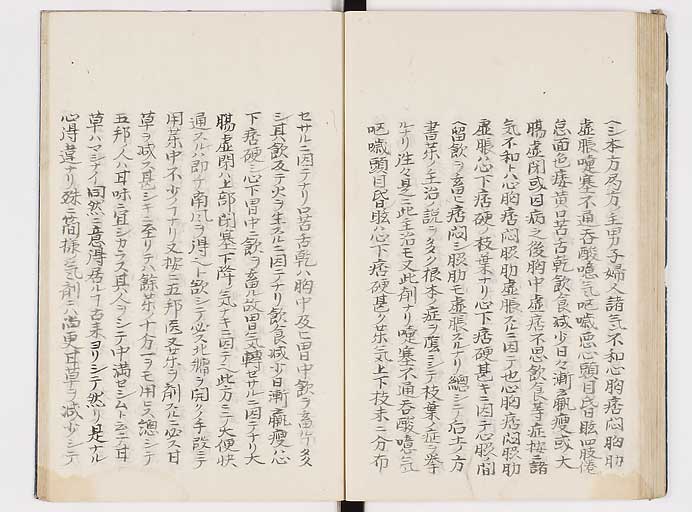 シ本方局方ノ主男子婦人諸氣不和心胸痞悶胸肋
虚脹噎塞不通呑酸噫氣嘔噦惡心頭目昏眩四肢倦
怠面色痿黄口苦舌乾飲食減少日々漸羸瘦或大
腸虚閉或因病之後胸中虚痞不思飲食等症按ニ諸
氣不和ト心胸痞悶脹肋虚脹スルニ因テ也心胸痞悶脹肋
虚脹ハ心下痞硬ノ枝葉ナリ心下痞硬甚キニ因テ心脹間
ニ留飲ヲ畜ヒ痞悶シ脹肋モ虚脹スルナリ總シテ后土ノ方
書藥ノ主治ノ説ヲ多ク根本ノ症ヲ シテ枝葉ノ症ヲ挙
ルナリ往々是ニ此主治モ又此剤ナリ噎塞不通呑酸噫氣
嘔噦頭目昏眩ハ心下痞硬甚ク藥氣上下技末ニ分布
セサルニ因テナリ口苦舌乾ハ胸中及ヒ胃中飲ヲ畜ルヿ多
シ其飲及テ火ヲ生スルニ因テナリ飲食減少日漸羸瘦ハ心
下痞硬シ心下胃中ニ飲ヲ畜ル故胃氣轉セサルニ因テナリ大
腸虚閉ハ上部閉塞下降ノ氣ナキニ因テ也此方ニテ大便快
通スルハ即チ南風ヲ得ヘト欲シテ必ス北牖ヲ開クノ手段ニテ
用藥中不少ノ了ナリ又按ニ五邦醫又藥ヲ剤スルニ必ス甘
草ヲ減ス甚シキニ至リテハ餘藥ノ十方一ヲモ用ヒス總シテ
五邦人ハ甘味ニ宜シカラス其人ヲシテ中滿セシムト云テ甘
草ハマシナイ同然ニ意得居ルヿ古来ヨリシテ然リ是ナル
心得違ナリ殊ニ箇様ノ氣剤ニハ尚更甘草ヲ減少シテ